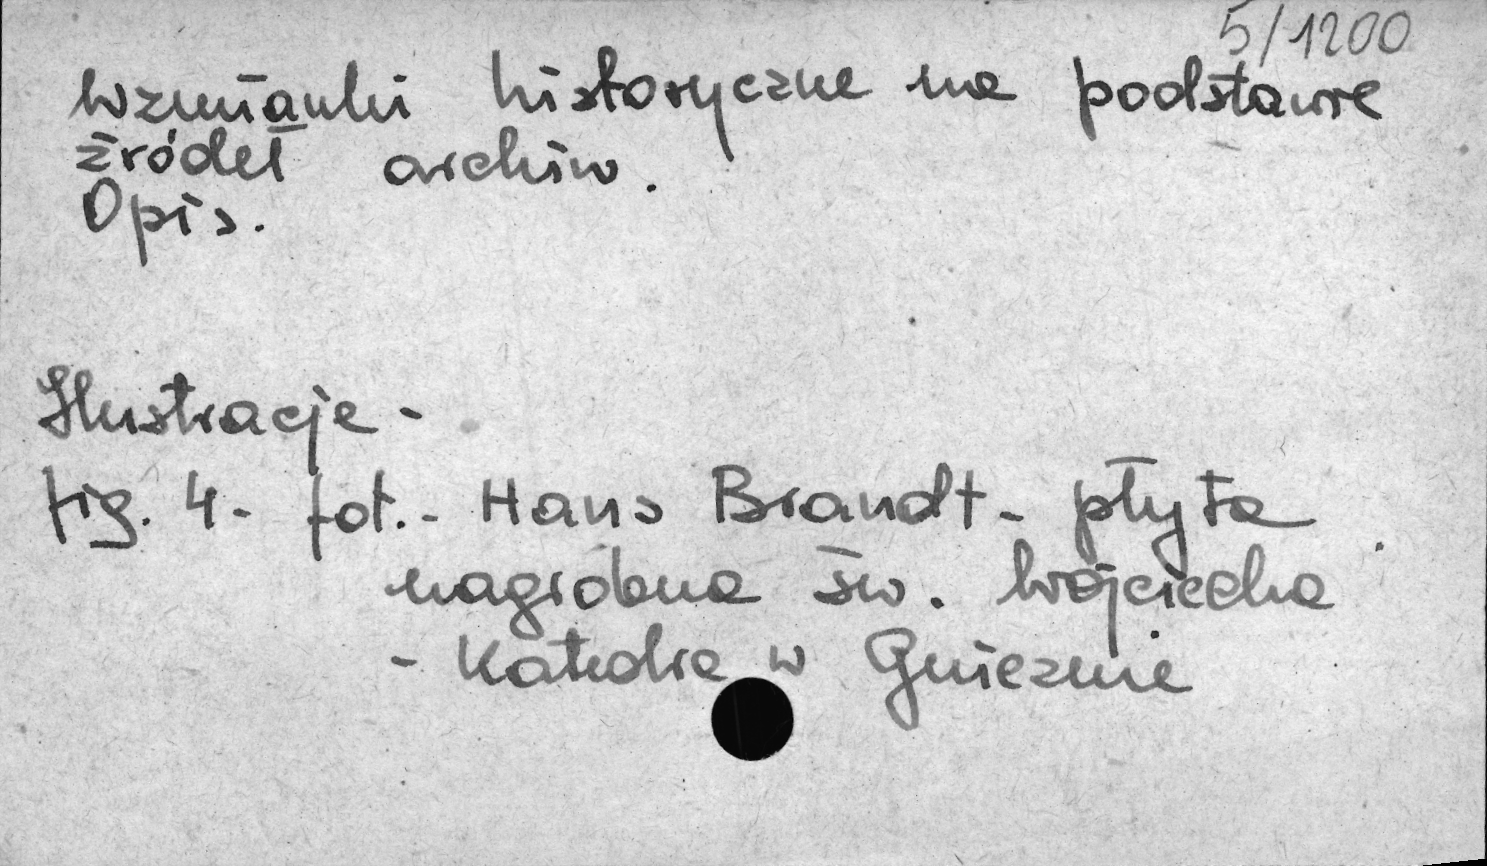 5/1200
Wzmianki historyczne na podstawie
źródeł archiw.
Opis.
Ilustracje -
fig. 4 - fot. - Hans Brandt - płyta
nagrobna św. Wojciecha
- Katedra w Gnieznie